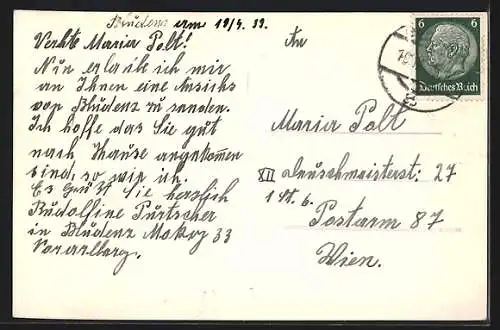 Bludenz am 19/4. 39.
Verhte Maria Polt!
Nun erlaube ich mir
an Ihnen eine Ansichs
von Bludenz zu senden.
Ich hoffe das Sie gut
nach Hause angekommen
sind, so wie ich.
Es Grüßt Sie herzlich
Rudolfine Purtscher
in Bludenz Mokry 33
Vorarlberg.
An
Maria Polt
XII Deuschmeisterst: 27
1 St. 6.
Postarm 87
Wien.
6 6
Deutsches Reich